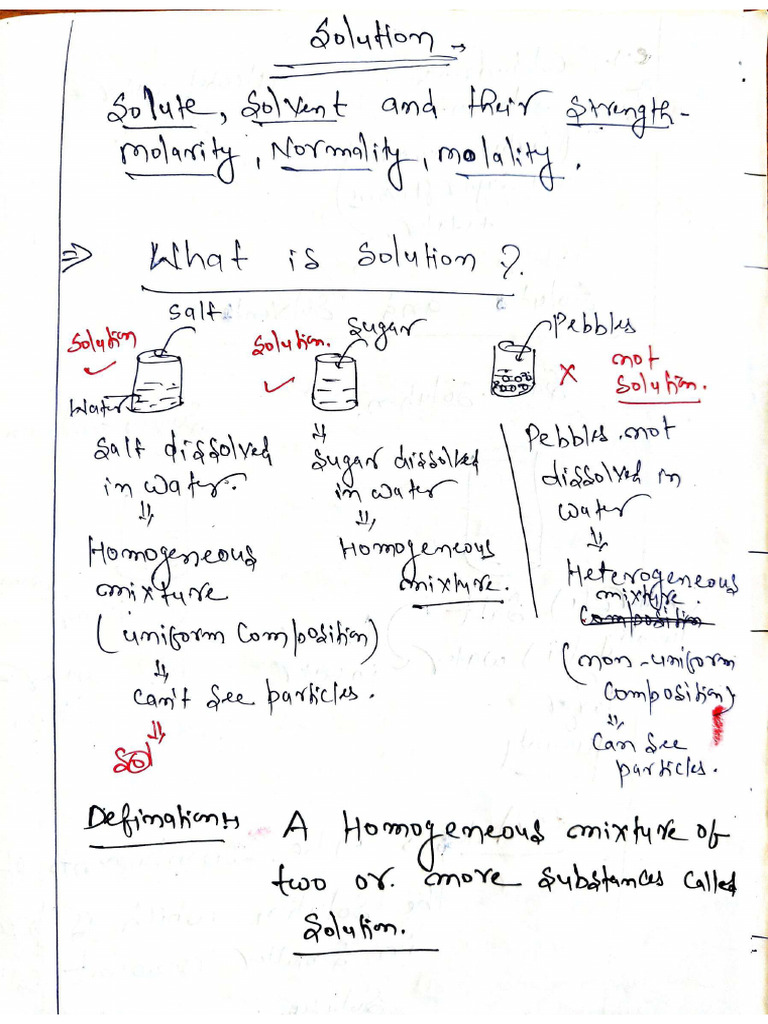 Solution →
Solute, Solvent and their Strength-
Molarity, Normality, molality.
⇒ What is solution?
Salt
Solution
Water
Salt dissolved
in water.
Homogeneous
mixture
(uniform Composition)
Can't See particles.
Sol
Solution.
Sugar
Sugar dissolved
in water
Homogeneous
mixture.
Pebbles
not
Solution.
Pebbles not
dissolved in
water
Heterogeneous
mixture.
Composition
(non-uniform
Composition)
Can See
particles.
Defination:→ A Homogeneous mixture of
two or. more substances called
Solution.